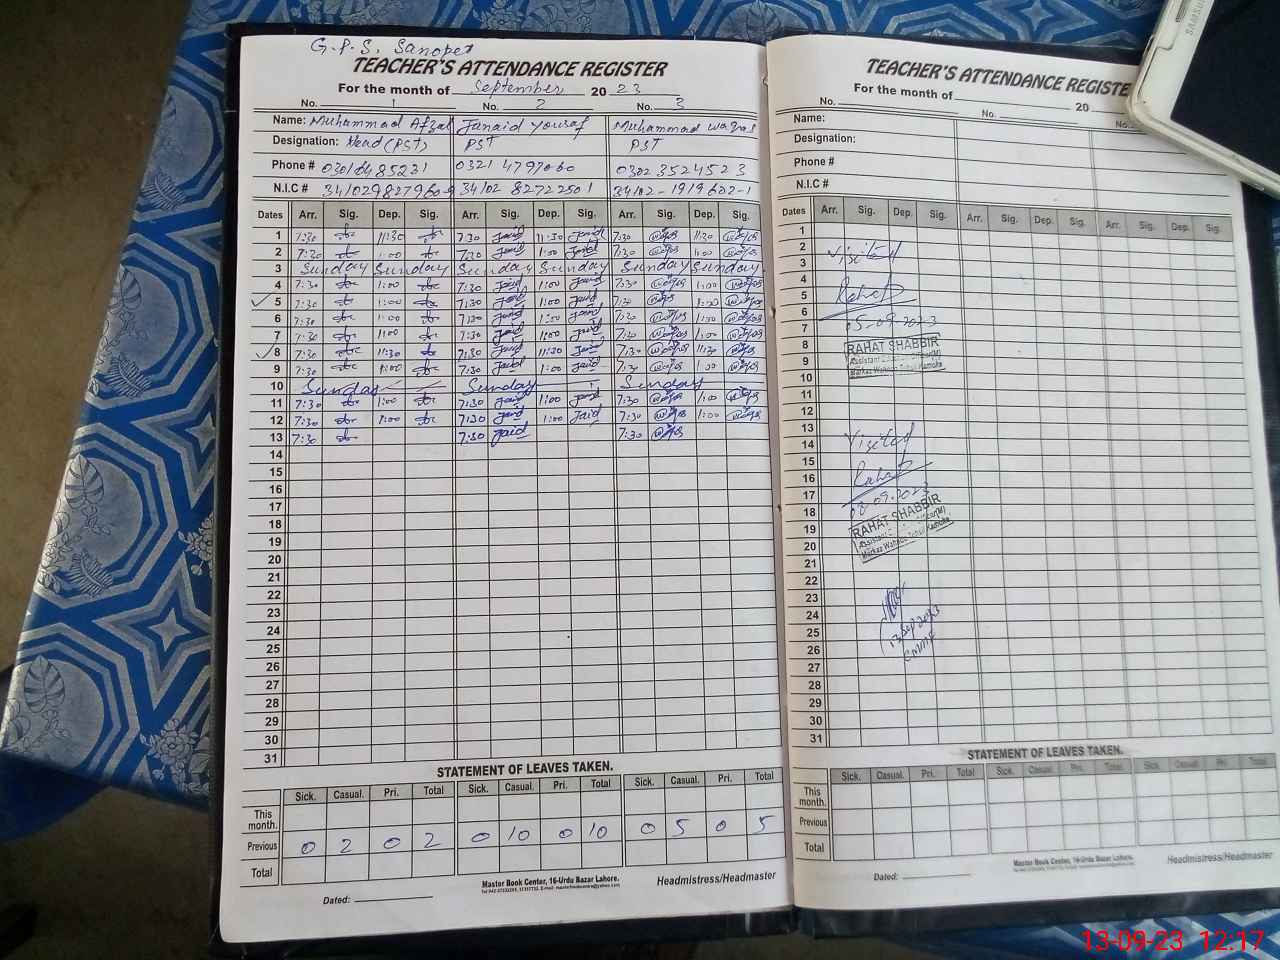 G.P.S. Sanopet
TEACHER'S ATTENDANCE REGISTER
For the month of September 20 23
No. 1 No. 2 No. 3
Name: Muhammad Afzal Junaid Yousaf Muhammad Waqas
Designation: Head (PST) PST PST
Phone # 0321 4797060 0302 3524523
N.I.C # 34102 8272250 1 34102-1919602-1
Dates Arr. Sig. Dep. Sig. Arr. Sig. Dep. Sig. Arr. Sig. Dep. Sig.
1 7:30 11:30 7:30 11:30 7:30 11:30
2 7:30 1:00 7:30 1:00 7:30 1:00
3 Sunday Sunday Sunday Sunday Sunday Sunday
4 7:30 1:00 7:30 1:00 7:30 1:00
5 7:30 1:00 7:30 1:00 7:30 1:00
6 7:30 1:00 7:30 1:00 7:30 1:00
7 7:30 1:00 7:30 1:00 7:30 1:00
8 7:30 11:30 7:30 11:30 7:30 11:30
9 7:30 1:00 7:30 1:00 7:30 1:00
10 Sunday Sunday Sunday
11 7:30 1:00 7:30 1:00 7:30 1:00
12 7:30 1:00 7:30 1:00 7:30 1:00
13 7:30 7:30 7:30
14
15
16
17
18
19
20
21
22
23
24
25
26
27
28
29
30
31
STATEMENT OF LEAVES TAKEN.
Sick. Casual. Pri. Total Sick. Casual. Pri. Total Sick. Casual. Pri. Total
This month.
Previous 0 2 0 2 0 10 0 10 0 5 0 5
Total
Master Book Center, 16-Urdu Bazar Lahore.
Dated: Headmistress/Headmaster
TEACHER'S ATTENDANCE REGISTER
For the month of 20
No. No. No.
Name:
Designation:
Phone #
N.I.C #
Dates Arr. Sig. Dep. Sig. Arr. Sig. Dep. Sig. Arr. Sig. Dep. Sig.
1
2 Visited
3
4
5
6
7 05-09-2023
8 RAHAT SHABBIR
9 Assistant
10
11
12
13
14 Visited
15
16
17
18 08-09-2023
19 RAHAT SHABBIR
20 Assistant
21
22
23
24
25 13 Sep 2023
26
27
28
29
30
31
STATEMENT OF LEAVES TAKEN.
Sick. Casual. Pri. Total Sick. Casual. Pri. Total Sick. Casual. Pri. Total
This month.
Previous
Total
Master Book Center, 16-Urdu Bazar Lahore.
Dated: Headmistress/Headmaster
SAMSUNG
13-09-23 12:17